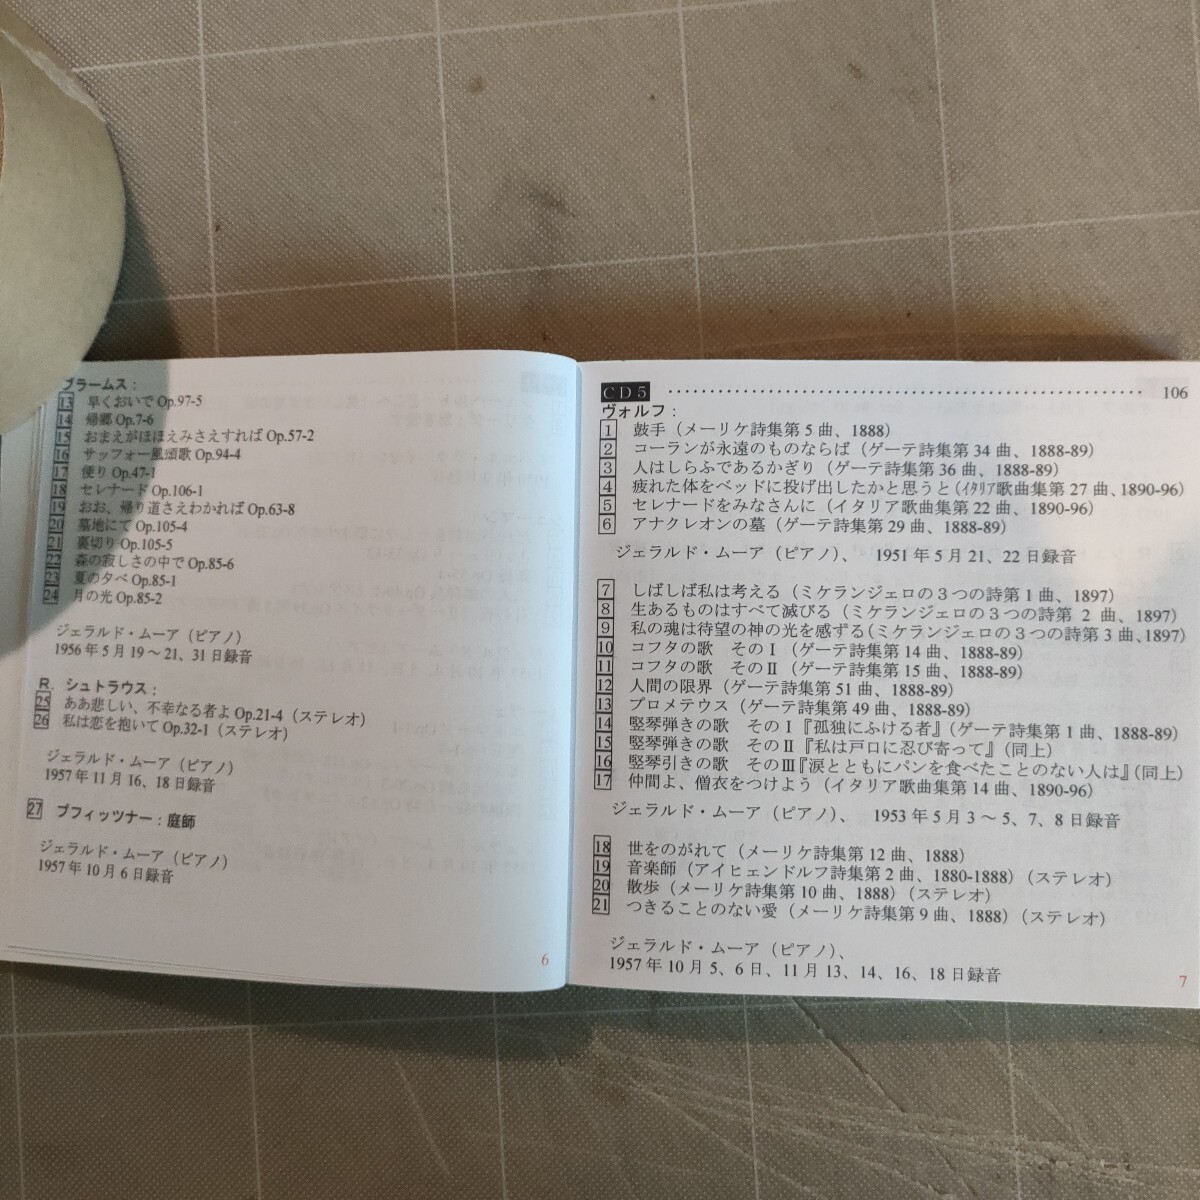 ブラームス：
13 早くおいで Op.97-5
14 帰郷 Op.7-6
15 おまえがほほえみさえすれば Op.57-2
16 サッフォー風頌歌 Op.94-4
17 便り Op.47-1
18 セレナード Op.106-1
19 おお、帰り道さえわかれば Op.63-8
20 墓地にて Op.105-4
21 裏切り Op.105-5
22 森の寂しさの中で Op.85-6
23 夏の夕べ Op.85-1
24 月の光 Op.85-2
ジェラルド・ムーア（ピアノ）
1956年5月19～21、31日録音
R. シュトラウス：
25 ああ悲しい、不幸なる者よ Op.21-4（ステレオ）
26 私は恋を抱いて Op.32-1（ステレオ）
ジェラルド・ムーア（ピアノ）
1957年11月16、18日録音
27 プフィッツナー：庭師
ジェラルド・ムーア（ピアノ）
1957年10月6日録音
6
CD5 106
ヴォルフ：
1 鼓手（メーリケ詩集第5曲、1888）
2 コーランが永遠のものならば（ゲーテ詩集第34曲、1888-89）
3 人はしらふであるかぎり（ゲーテ詩集第36曲、1888-89）
4 疲れた体をベッドに投げ出したかと思うと（ｲﾀﾘｱ歌曲集第27曲、1890-96）
5 セレナードをみなさんに（イタリア歌曲集第22曲、1890-96）
6 アナクレオンの墓（ゲーテ詩集第29曲、1888-89）
ジェラルド・ムーア（ピアノ）、 1951年5月21、22日録音
7 しばしば私は考える（ミケランジェロの３つの詩第1曲、1897）
8 生あるものはすべて滅びる（ミケランジェロの３つの詩第2曲、1897）
9 私の魂は待望の神の光を感ずる（ミケランジェロの３つの詩第3曲、1897）
10 コフタの歌 そのⅠ（ゲーテ詩集第14曲、1888-89）
11 コフタの歌 そのⅡ（ゲーテ詩集第15曲、1888-89）
12 人間の限界（ゲーテ詩集第51曲、1888-89）
13 プロメテウス（ゲーテ詩集第49曲、1888-89）
14 竪琴弾きの歌 そのⅠ『孤独にふける者』（ゲーテ詩集第1曲、1888-89）
15 竪琴弾きの歌 そのⅡ『私は戸口に忍び寄って』（同上）
16 竪琴引きの歌 そのⅢ『涙とともにパンを食べたことのない人は』（同上）
17 仲間よ、僧衣をつけよう（イタリア歌曲集第14曲、1890-96）
ジェラルド・ムーア（ピアノ）、 1953年5月3～5、7、8日録音
18 世をのがれて（メーリケ詩集第12曲、1888）
19 音楽師（アイヒェンドルフ詩集第2曲、1880-1888）（ステレオ）
20 散歩（メーリケ詩集第10曲、1888）（ステレオ）
21 つきることのない愛（メーリケ詩集第9曲、1888）（ステレオ）
ジェラルド・ムーア（ピアノ）、
1957年10月5、6日、11月13、14、16、18日録音
7